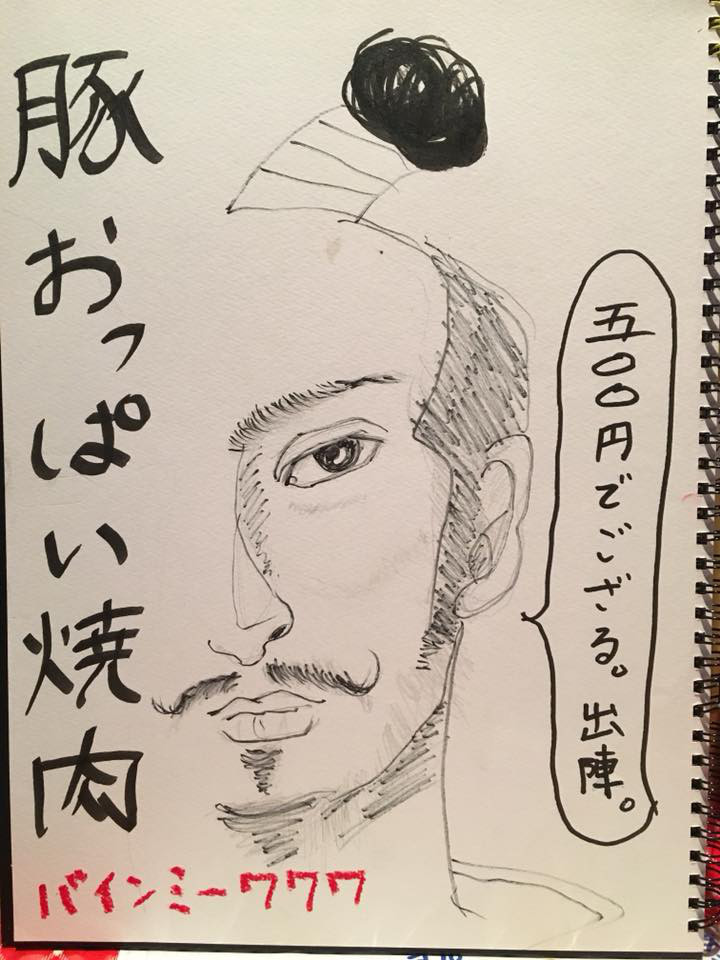 五〇〇円でござる。出陣。
豚おっぱい焼肉
バインミーワワワ